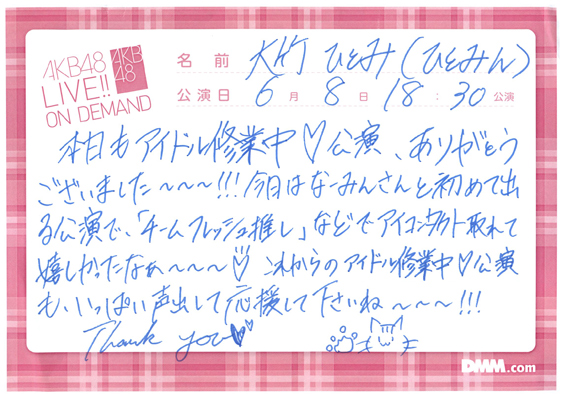 AKB48
LIVE!!
ON DEMAND
AKB
48
名前 大竹 ひとみ(ひとみん)
公演日 6月 8日 18:30公演
本日もアイドル修業中♡公演、ありがとう
ございました〜〜〜!!!今日はなーみんさんと初めて出
る公演で、「チームフレッシュ推し」などでアイコンタクト取れて
嬉しかったなぁ〜〜〜♡ これからのアイドル修業中♡公演
も、いっぱい声出して応援して下さいね〜〜〜!!!
Thank you♡
DMM.com